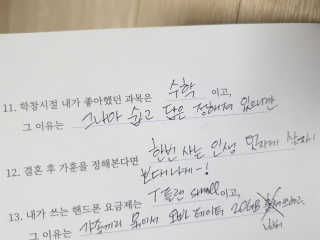 11. 학창시절 내가 좋아했던 과목은 수학 이고,
그 이유는 그나마 쉽고 답은 정해져 있으니깐
12. 결혼 후 가훈을 정해본다면 한번 사는 인생 멋지게 살자!
보다 나게~!
13. 내가 쓰는 핸드폰 요금제는 T플랜 small이고,
그 이유는 가족끼리 묶여서 모바일 데이터 20GB